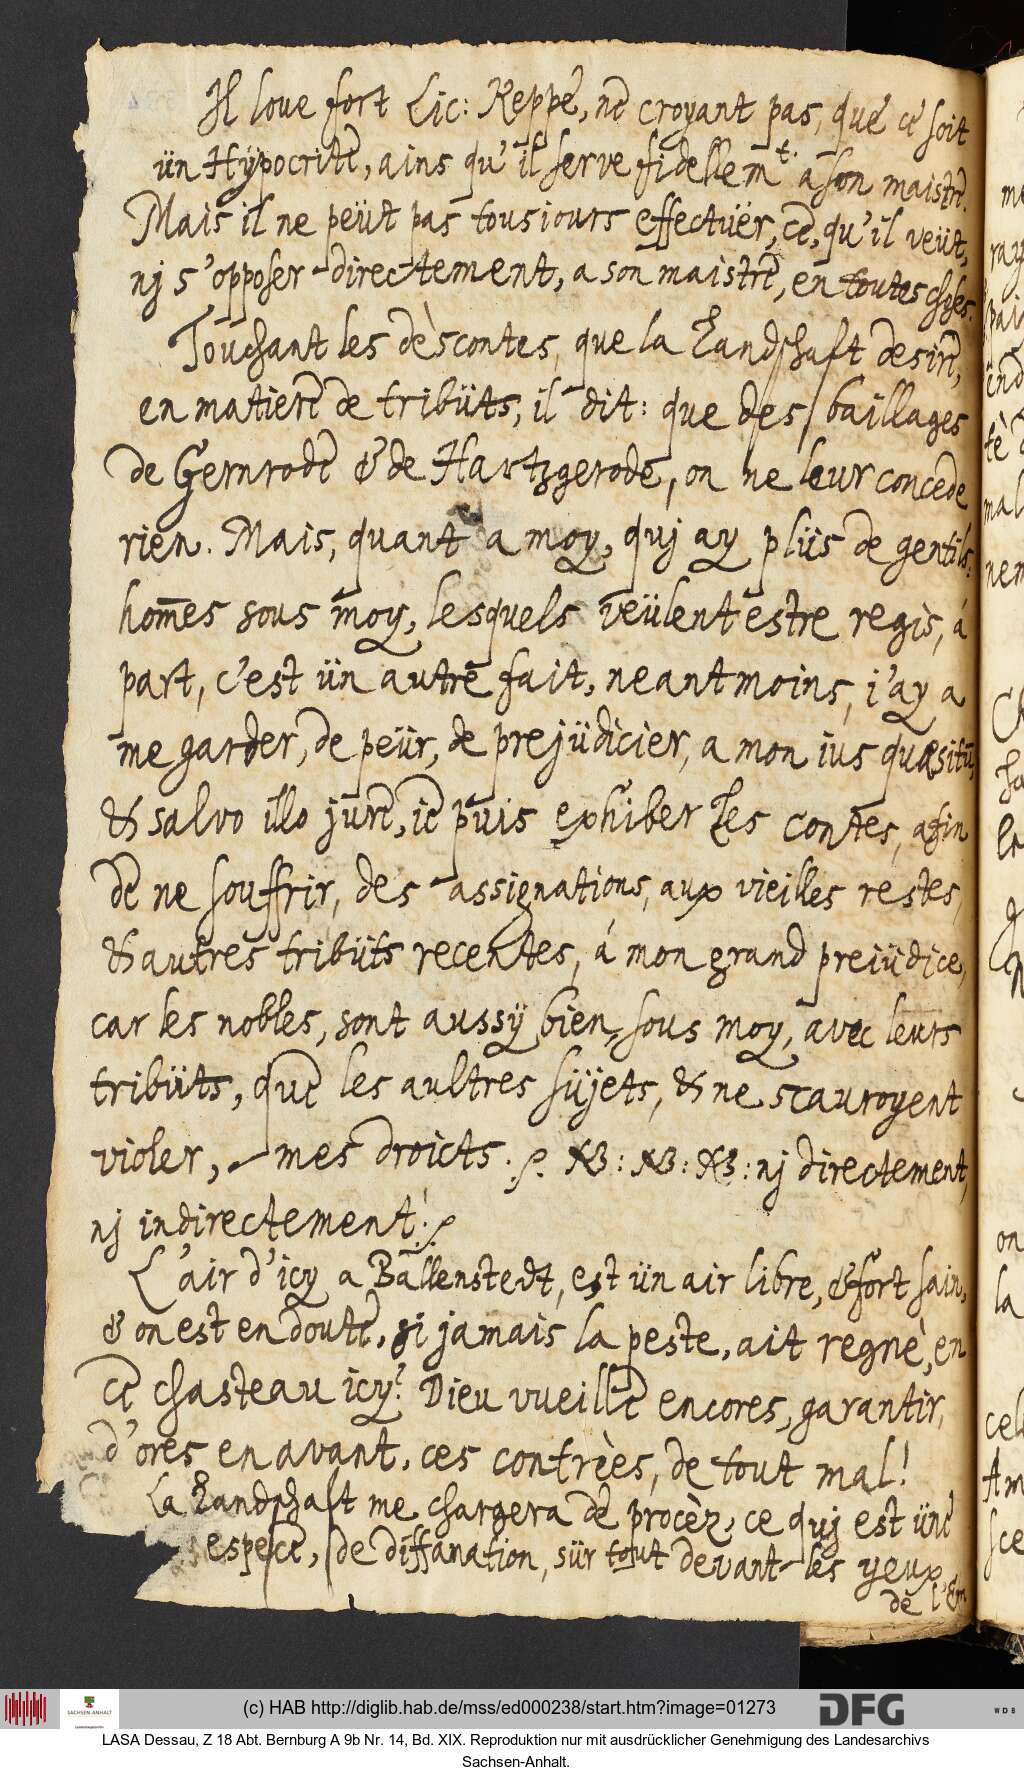 Il loue fort Lic: Keppe, ne croyant pas, que ce soit
ün Hÿpocrite, ains qu'il serve fidellem.t a son maistre.
Mais il ne peüt pas tousiours effectuër, ce, qu'il veüt,
nj s'opposer directement, a son maistre, en toutes choses.
Touchant les dèscontes, que la Landschaft desire,
en matiere de tribüts, il dit: que des baillages
de Gernrode & de Hartzgerode, on ne leur concede
rien. Mais, quant a moy, quj ay plüs de gentils-
hom̄es sous moy, lesquels veülent estre regis, á
part, c'est ün autre fait, neantmoins, i'ay a
me garder, de peür, de prejüdicier, a mon ius quæsitū,
& salvo illo jure, ie puis exhiber les contes, afin
de ne souffrir, des assignations, aux vieilles restes,
& autres tribüts recentes, á mon grand preiüdice,
car les nobles, sont aussÿ bien, sous moy, avec leurs
tribüts, que les aultres süjets, & ne scauroyent
violer, mes droicts. NB: NB: NB: nj directement,
nj indirectement!
L'air d'icy a Ballenstedt, est ün air libre, & fort sain,
& on est en doute, si jamais la peste, ait regnè, en
ce chasteau icy? Dieu vueille encores, garantir,
d'ores en avant, ces contrèes, de tout mal!
La Landschaft me chargera de procèz, ce quj est üne
espece, de diffanation, sür tout devant les yeux
de l'Em.
(c) HAB http://diglib.hab.de/mss/ed000238/start.htm?image=01273
DFG
WDB
SACHSEN-ANHALT
LASA Dessau, Z 18 Abt. Bernburg A 9b Nr. 14, Bd. XIX. Reproduktion nur mit ausdrücklicher Genehmigung des Landesarchivs
Sachsen-Anhalt.